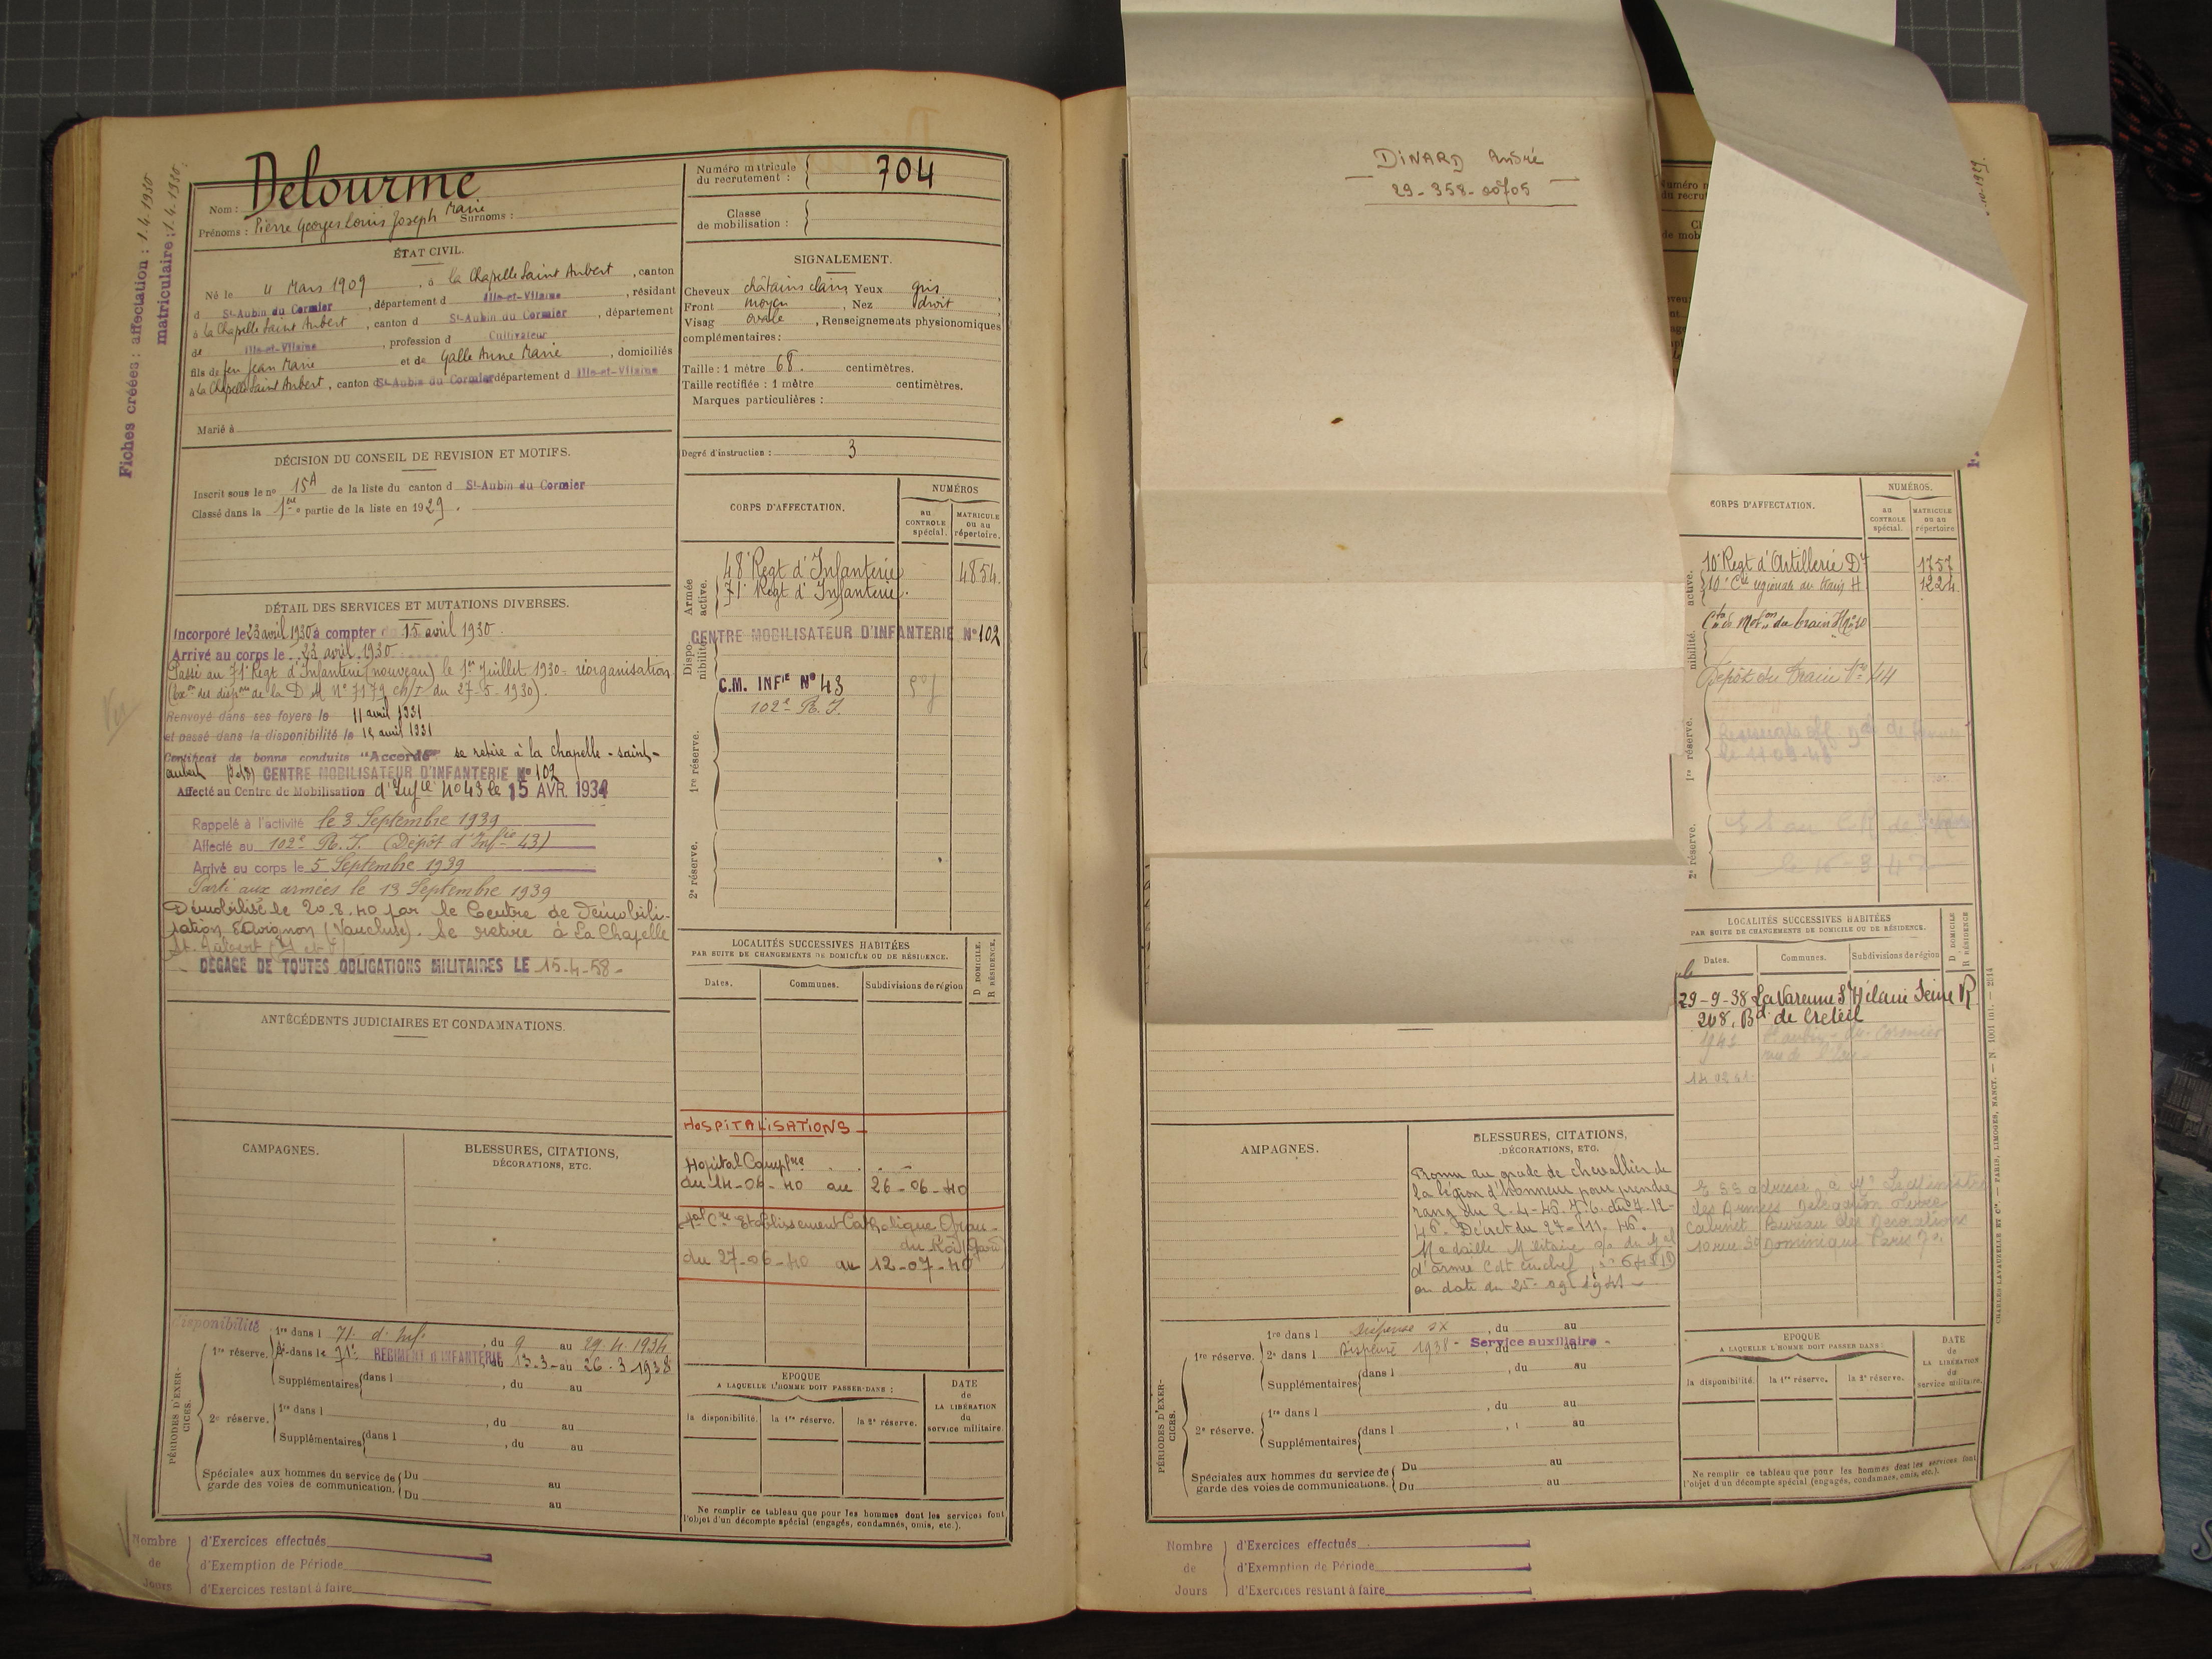 Fiches créées : affectation : 1.4.1930
matriculaire : 1.4.1930
Nom : Delourme
Prénoms : Pierre Georges Louis Joseph Marie Surnoms :
Numéro matricule du recrutement : 704
Classe de mobilisation :
ÉTAT CIVIL.
Né le 4 Mars 1909, à la Chapelle Saint Aubert, canton
d St-Aubin du Cormier, département d Ille-et-Vilaine, résidant
à la Chapelle Saint Aubert, canton d St-Aubin du Cormier, département
de Ille-et-Vilaine, profession d Cultivateur
fils de feu Jean Marie et de Galle Anne Marie, domiciliés
à la Chapelle Saint Aubert, canton d St-Aubin du Cormier département d Ille-et-Vilaine
Marié à
SIGNALEMENT.
Cheveux châtains clairs Yeux gris
Front moyen, Nez droit
Visag ovale, Renseignements physionomiques
complémentaires :
Taille : 1 mètre 68. centimètres.
Taille rectifiée : 1 mètre centimètres.
Marques particulières :
Degré d'instruction : 3
DÉCISION DU CONSEIL DE REVISION ET MOTIFS.
Inscrit sous le no 15A de la liste du canton d St-Aubin du Cormier
Classé dans la 1ère partie de la liste en 1929.
DÉTAIL DES SERVICES ET MUTATIONS DIVERSES.
Incorporé le 23 avril 1930 à compter du 15 avril 1930.
Arrivé au corps le 23 avril 1930
Passé au 71e Regt d'Infanterie (nouveau) le 1er Juillet 1930 - réorganisation
de la D.M. No 7179 du 27-5-1930).
Renvoyé dans ses foyers le 11 avril 1931
et passé dans la disponibilité le 15 avril 1931
Certificat de bonne conduite "Accordé" se retire à la chapelle-saint-
aubert CENTRE MOBILISATEUR D'INFANTERIE No 102
Affecté au Centre de Mobilisation d'Infie No 43 le 15 AVR. 1934
Rappelé à l'activité le 3 Septembre 1939
Affecté au 102e R.I. (Dépôt d'Infie 43)
Arrivé au corps le 5 Septembre 1939
Parti aux armées le 13 Septembre 1939
Démobilisé le 20.8.40 par le Centre de Démobili-
sation d'Avignon (Vaucluse). Se retire à La Chapelle
St. Aubert (I et V)
DÉGAGÉ DE TOUTES OBLIGATIONS MILITAIRES LE 15-4-58-
ANTÉCÉDENTS JUDICIAIRES ET CONDAMNATIONS.
CAMPAGNES.
BLESSURES, CITATIONS,
DÉCORATIONS, ETC.
CORPS D'AFFECTATION.
NUMÉROS
au CONTROLE spécial.
MATRICULE ou au répertoire.
Armée active.
48e Regt d'Infanterie 4854
71e Regt d'Infanterie.
Disponibilité.
CENTRE MOBILISATEUR D'INFANTERIE No 102
C.M. INFIE No 43
102e R.I.
1re réserve.
2e réserve.
LOCALITÉS SUCCESSIVES HABITÉES
PAR SUITE DE CHANGEMENTS DE DOMICILE OU DE RÉSIDENCE.
D DOMICILE. R RÉSIDENCE.
Dates. Communes. Subdivisions de région
HOSPITALISATIONS-
Hopital Complre
du 14-06-40 au 26-06-40
Hal Cre Etablissement Catholique Grau-
du Roi (Gard)
du 27-06-40 au 12-07-40
PÉRIODES D'EXERCICES.
Disponibilité
1re réserve. 1re dans l 71e d'Inf, du 9 au 29.4.1934
2e dans le 71e RÉGIMENT D'INFANTERIE du 13.3 au 26.3.1938
Supplémentaires dans l , du au
2e réserve. 1re dans l , du au
Supplémentaires dans l , du au
Spéciales aux hommes du service de
garde des voies de communication. Du au
Du au
EPOQUE
A LAQUELLE L'HOMME DOIT PASSER DANS :
la disponibilité. la 1re réserve. la 2e réserve.
DATE de LA LIBÉRATION du service militaire.
Ne remplir ce tableau que pour les hommes dont les services font
l'objet d'un décompte spécial (engagés, condamnés, omis, etc.).
Nombre de Jours
d'Exercices effectués
d'Exemption de Période
d'Exercices restant à faire
DINARD André
29-358-00705
CORPS D'AFFECTATION.
NUMÉROS.
au CONTROLE spécial.
MATRICULE ou au répertoire
active.
10e Regt d'Artillerie Dre 1757
10e Cie régionale du train H. 1224
nibilité.
Dépôt du Train No 44
1re réserve.
2e réserve.
LOCALITÉS SUCCESSIVES HABITÉES
PAR SUITE DE CHANGEMENTS DE DOMICILE OU DE RÉSIDENCE.
D DOMICILE R RÉSIDENCE
Dates. Communes. Subdivisions de région
le
29-9-38 La Varenne St Hilaire Seine R
208, Bd de Creteil
AMPAGNES.
BLESSURES, CITATIONS,
DÉCORATIONS, ETC.
Promu au grade de chevallier de
la légion d'honneur pour prendre
rang du 2-4-46. J.O. du 7-12-
46. Décret du 27-111-46.
Médaille Militaire
d'armée Cdt en chef
en date du 25
des Armées
Cabinet Bureau des Décorations
10 rue St Dominique Paris 7e
1re réserve. 1re dans l Dispense , du au
2e dans l Dispensé 1938 - Service auxiliaire -
Supplémentaires dans l , du au
2e réserve. 1re dans l , du au
Supplémentaires dans l au
PÉRIODES D'EXERCICES.
Spéciales aux hommes du service de
garde des voies de communications. Du au
Du au
EPOQUE
A LAQUELLE L'HOMME DOIT PASSER DANS :
la disponibilité. la 1re réserve. la 2e réserve.
DATE de LA LIBÉRATION du service militaire.
Ne remplir ce tableau que pour les hommes dont les services font
l'objet d'un décompte spécial (engagés, condamnés, omis, etc.).
Nombre de Jours
d'Exercices effectués
d'Exemption de Période
d'Exercices restant à faire
CHARLES-LAVAUZELLE ET Cie - PARIS, LIMOGES, NANCY.